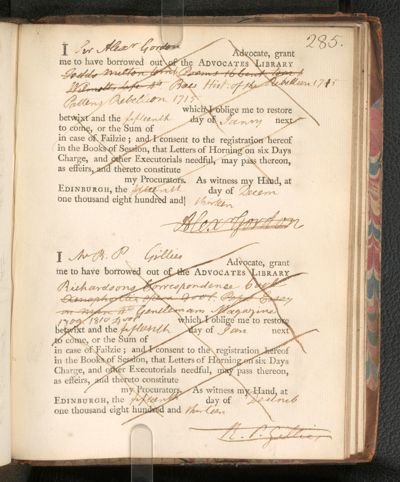 285.
I Sir Alexr Gordon Advocate, grant
me to have borrowed out of the ADVOCATES LIBRARY
Todds Milton Poems
Raes Hist. of the Rebellion 1715
Rebellion 1715
which I oblige me to restore
betwixt and the fifteenth day of Janry next
to come, or the Sum of
in case of Failzie; and I consent to the registration hereof
in the Books of Session, that Letters of Horning on six Days
Charge, and other Executorials needful, may pass thereon,
as effeirs, and thereto constitute
my Procurators. As witness my Hand, at
EDINBURGH, the fifteenth day of Decem
one thousand eight hundred and thirteen
Alexr Gordon
I Mr R. P. Gillies Advocate, grant
me to have borrowed out of the ADVOCATES LIBRARY
Richardsons Correspondence
Gentlemans Magazine
which I oblige me to restore
betwixt and the fifteenth day of Jan next
to come, or the Sum of
in case of Failzie; and I consent to the registration hereof
in the Books of Session, that Letters of Horning on six Days
Charge, and other Executorials needful, may pass thereon,
as effeirs, and thereto constitute
my Procurators. As witness my Hand, at
EDINBURGH, the fifteenth day of
one thousand eight hundred and thirteen
R. P. Gillies